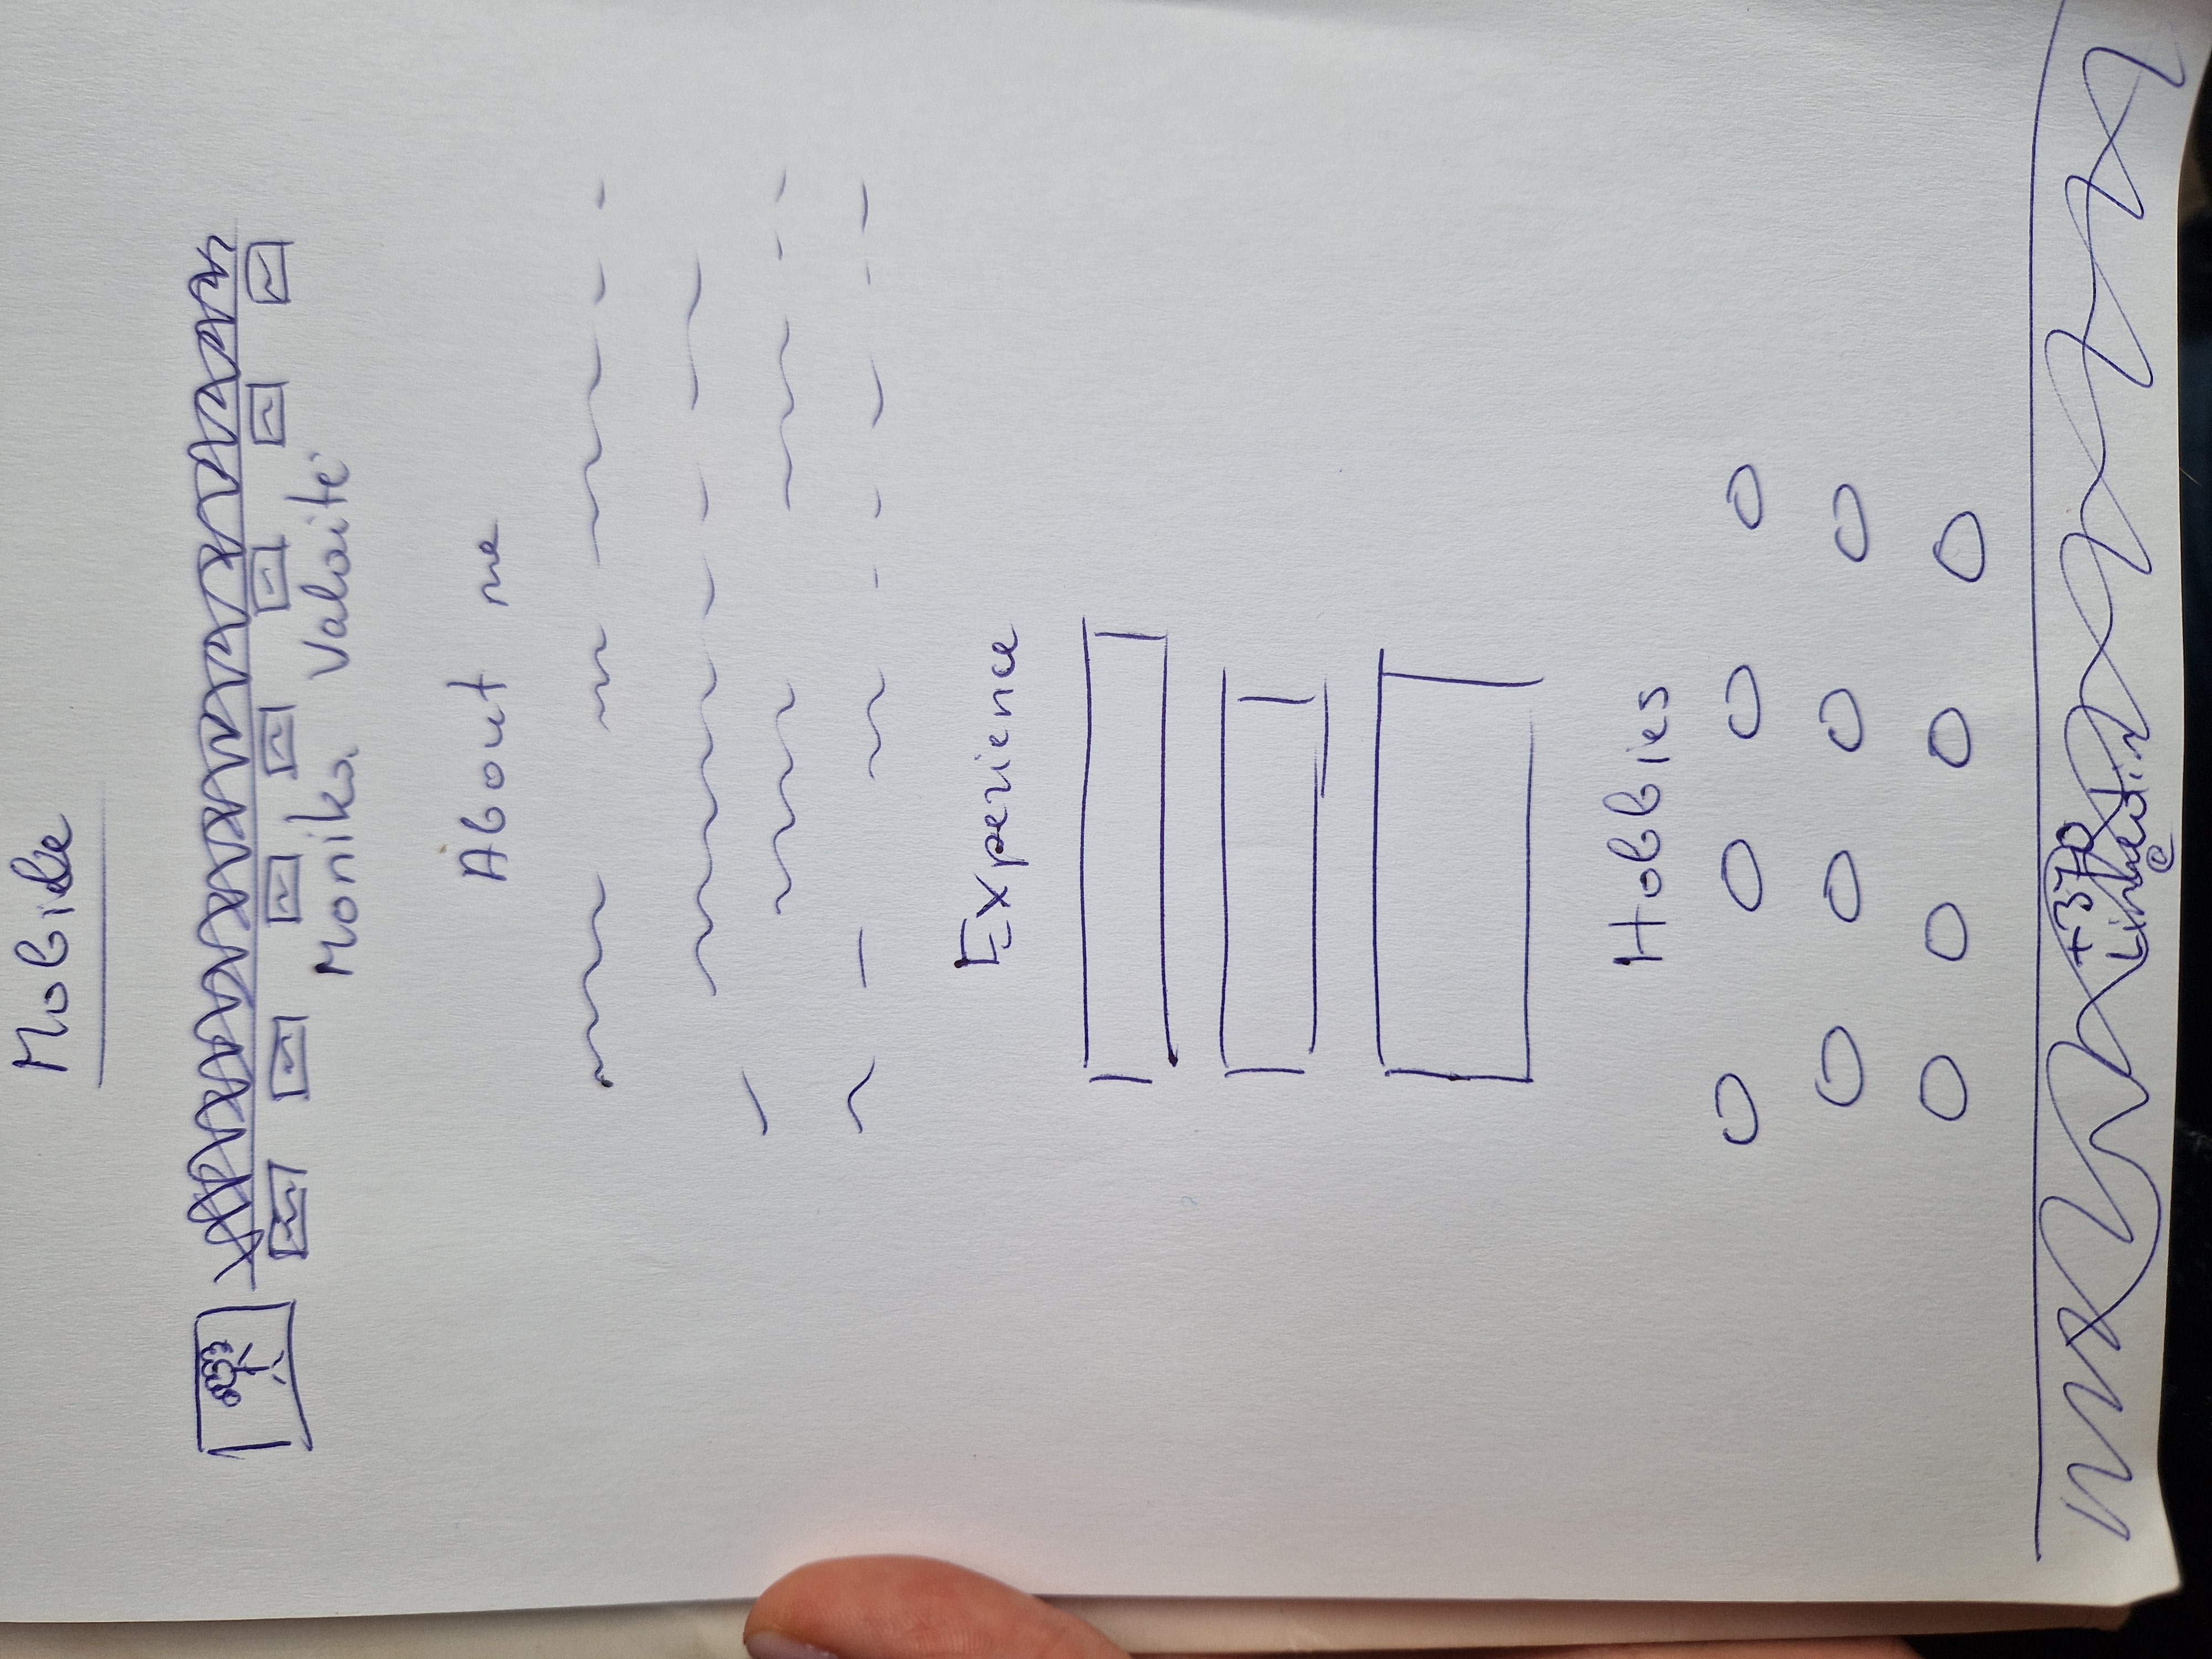 Mobile
Monika Valaitė
About me
Experience
Hobbies
+370
Linkedin
@